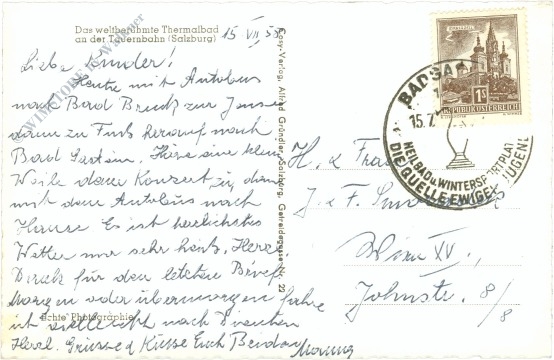 Das weltberühmte Thermalbad
an der Tauernbahn (Salzburg)
15 VII 58
Liebe Kinder!
Heute mit Autobus
nach Bad Bruck zur
dann zu Fuß herauf nach
Bad Gastein, Hier eine kleine
Weile dem Konzert zu, dann
mit dem Autobus nach
Hause Es ist herrlichstes
Wetter nur sehr heiß. Herzl.
Dank für den letzten Brief
Morgen oder übermorgen fahre
ich vielleicht nach
Herzl. Grüsse & Küsse Euch Beiden
Echte Photographie
Cosy-Verlag, Alfred Gründler, Salzburg, Getreidegasse Nr. 22
MARIAZELL
1S
REPUBLIK ÖSTERREICH
BADGASTEIN
15.7.
HEILBAD u. WINTERSPORTPLATZ
DIE QUELLE EWIGER JUGEND
H. & Frau
J. & F.
Wien XV.,
Johnstr. 8/8